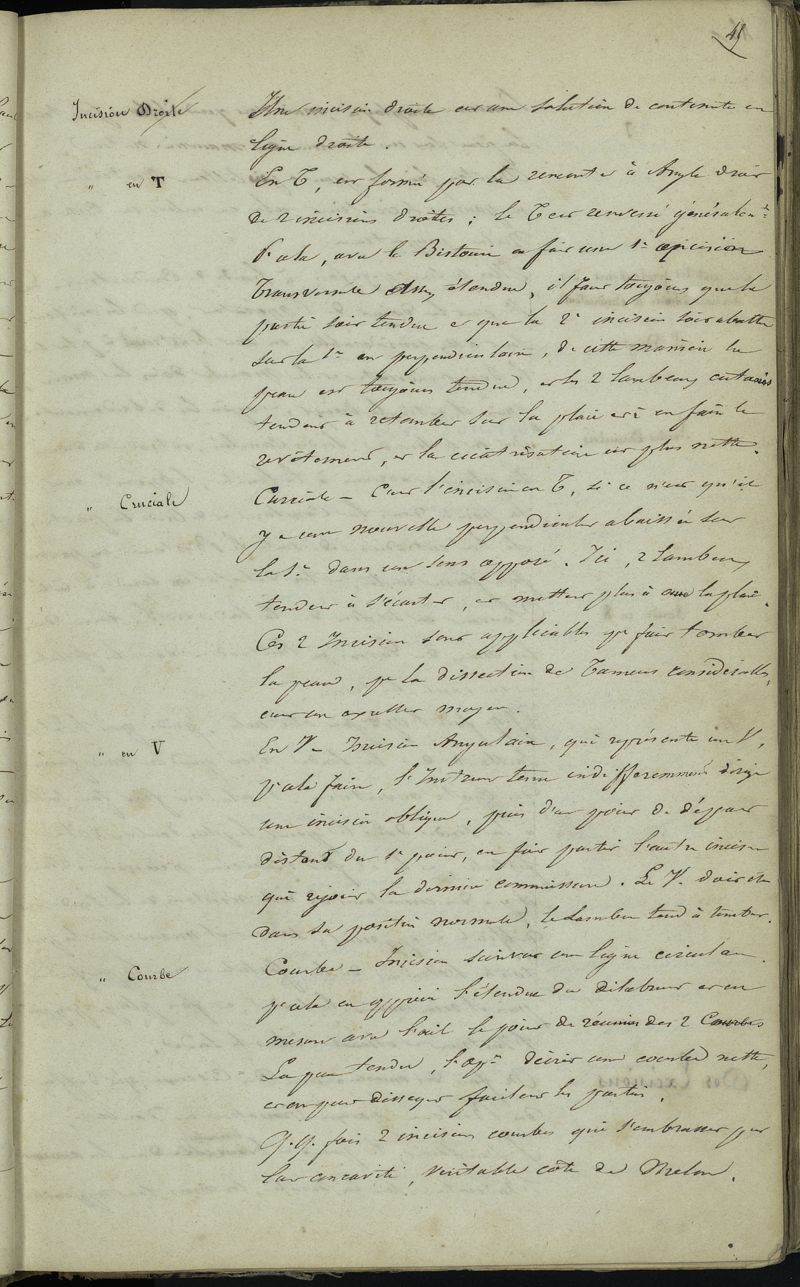 45
Incision Droite Une incision droite est une solution de continuité en
ligne droite.
" en T En T, est formé par la rencontre à Angle droit
de 2 incisions droites ; le T est renversé généralem.t
P.r cela, avec le Bistouri on fait une 1.re incision
Transversale assez étendue, il faut toujours que la
partie soit tendue et que la 2.e incision soit abattue
sur la 1.re en perpendiculaire, de cette manière la
peau est toujours tendue, et les 2 lambeaux cutanés
tendent à retomber sur la plaie et à en faire le
revêtement, et la cicatrisation est plus nette.
" Cruciale Cruciale – C'est l'incision en T, si ce n'est qu'il
y a une nouvelle perpendiculaire abaissée sur
la 1.re dans un sens opposé. Ici, 2 lambeaux
tendent à s'écarter, et mettent plus à la plaie.
Ces 2 Incisions sont applicables p.r faire tomber
la peau, p.r la dissection de Tumeurs considérables,
c'est un excellent moyen.
" en V En V – Incision Angulaire, qui représente un V,
p.r cela faire, l'Instrument tenu indifféremment dirige
une incision oblique, puis d'un point de départ
distant du 1.er point, on fait partir l'autre incision
qui rejoint la dernière commissure. Le V doit être
dans sa position normale, le Lambeau tend à tomber.
" Courbe Courbe – Incision suivant une ligne circulaire.
p.r cela on apprécie l'étendue du et on
mesure avec l'œil le point de réunion des 2 Courbes
La peau tendue, l'op.r décrit une courbe nette,
et on peut disséquer facilement les parties.
Q.Q. fois 2 incisions courbes qui s'embrassent par
leur concavité, véritable côte de Melon.